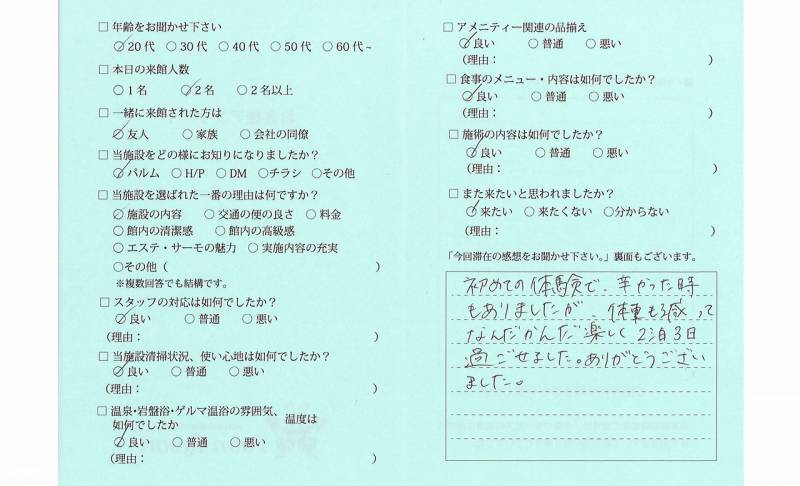 □ 年齢をお聞かせ下さい
○20代 ○30代 ○40代 ○50代 ○60代~
□ 本日の来館人数
○1名 ○2名 ○2名以上
□ 一緒に来館された方は
○友人 ○家族 ○会社の同僚
□ 当施設をどの様にお知りになりましたか？
○パルム ○H/P ○DM ○チラシ ○その他
□ 当施設を選ばれた一番の理由は何ですか？
○施設の内容 ○交通の便の良さ ○料金
○館内の清潔感 ○館内の高級感
○エステ・サーモの魅力 ○実施内容の充実
○その他（ ）
※複数回答でも結構です。
□ スタッフの対応は如何でしたか？
○良い ○普通 ○悪い
（理由： ）
□ 当施設清掃状況、使い心地は如何でしたか？
○良い ○普通 ○悪い
（理由： ）
□ 温泉・岩盤浴・ゲルマ温浴の雰囲気、温度は
如何でしたか
○良い ○普通 ○悪い
（理由： ）
□ アメニティー関連の品揃え
○良い ○普通 ○悪い
（理由： ）
□ 食事のメニュー・内容は如何でしたか？
○良い ○普通 ○悪い
（理由： ）
□ 施術の内容は如何でしたか？
○良い ○普通 ○悪い
（理由： ）
□ また来たいと思われましたか？
○来たい ○来たくない ○分からない
「今回滞在の感想をお聞かせ下さい。」裏面もございます。
初めての体験で、辛かった時
もありましたが、体重も減って
なんだかんだ楽しく2泊3日
過ごせました。ありがとうござい
ました。